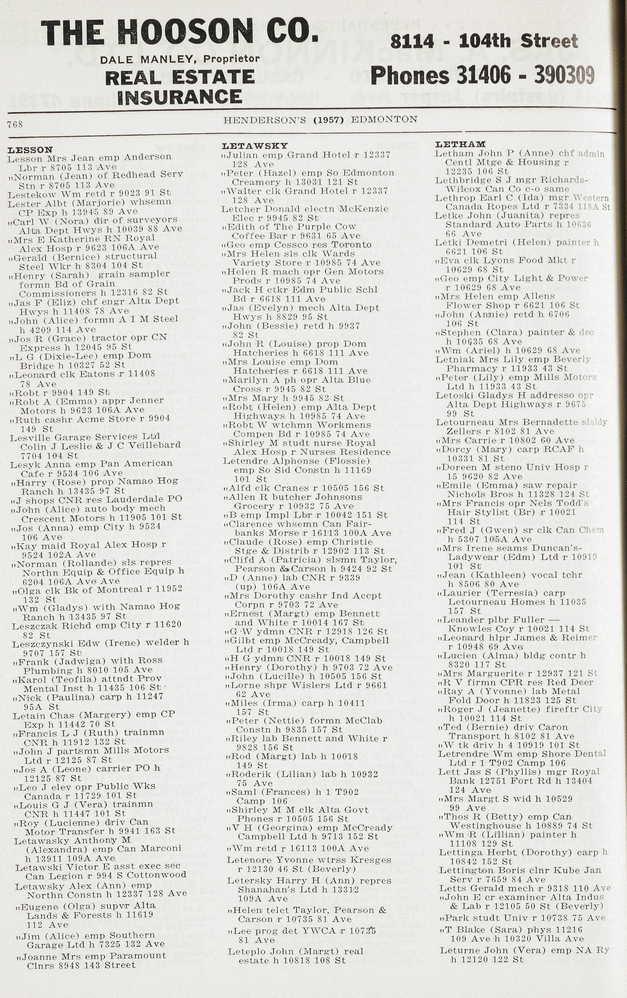 THE HOOSON CO.
DALE MANLEY, Proprietor
REAL ESTATE
INSURANCE
8114 - 104th Street
Phones 31406 - 390309
768
HENDERSON'S (1957) EDMONTON
LESSON
Lesson Mrs Jean emp Anderson
Lbr r 8705 113 Ave
„Norman (Jean) of Redhead Serv
Stn r 8705 113 Ave
Lestekow Wm retd r 9023 91 St
Lester Albt (Marjorie) whsemn
CP Exp h 13945 89 Ave
„Carl W (Nora) dir of surveyors
Alta Dept Hwys h 10039 88 Ave
„Mrs E Katherine RN Royal
Alex Hosp r 9623 106A Ave
„Gerald (Bernice) structural
Steel Wkr h 8304 104 St
„Henry (Sarah) grain sampler
formn Bd of Grain
Commissioners h 12316 82 St
„Jas F (Eliz) chf engr Alta Dept
Hwys h 11408 78 Ave
„John (Alice) formn A I M Steel
h 4209 114 Ave
„Jos R (Grace) tractor opr CN
Express h 12045 95 St
„L G (Dixie-Lee) emp Dom
Bridge h 10327 52 St
„Leonard clk Eatons r 11408
78 Ave
„Robt r 9904 149 St
„Robt A (Emma) appr Jenner
Motors h 9623 106A Ave
„Ruth cashr Acme Store r 9904
149 St
Lesville Garage Services Ltd
Colin J Leslie & J C Veillebard
7704 104 St
Lesyk Anna emp Pan American
Cafe r 9534 106 Ave
„Harry (Rose) prop Namao Hog
Ranch h 13435 97 St
„J shops CNR res Lauderdale PO
„John (Alice) auto body mech
Crescent Motors h 11905 101 St
„Jos (Anna) emp City h 9534
106 Ave
„Kay maid Royal Alex Hosp r
9524 102 A Ave
„Norman (Rollande) sls repres
Northn Equip & Office Equip h
6204 106A Ave Ave
„Olga clk Bk of Montreal r 11952
132 St
„Wm (Gladys) with Namao Hog
Ranch h 13435 97 St
Leszczak Richd emp City r 11620
82 St
Leszczynski Edw (Irene) welder h
9707 157 St
„Frank (Jadwiga) with Ross
Plumbing h 8010 105 Ave
„Karol (Teofila) attndt Prov
Mental Inst h 11435 106 St
„Nick (Paulina) carp h 11247
95A St
Letain Chas (Margery) emp CP
Exp h 11442 70 St
„Francis L J (Ruth) trainmn
CNR h 11912 132 St
„John J partsmn Mills Motors
Ltd r 12125 87 St
„Jos A (Leone) carrier PO h
12125 87 St
„Leo J elev opr Public Wks
Canada r 11729 101 St
„Louis G J (Vera) trainmn
CNR h 11447 101 St
„Roy (Lucienne) driv Can
Motor Transfer h 9941 163 St
Letawasky Anthony M
(Alexandra) emp Can Marconi
h 13911 109A Ave
Letawski Victor E asst exec sec
Can Legion r 994 S Cottonwood
Letawsky Alex (Ann) emp
Northn Constn h 12337 128 Ave
„Eugene (Olga) supvr Alta
Lands & Forests h 11619
112 Ave
„Jim (Alice) emp Southern
Garage Ltd h 7325 132 Ave
„Joanne Mrs emp Paramount
Clnrs 8948 143 Street
LETAWSKY
„Julian emp Grand Hotel r 12337
128 Ave
„Peter (Hazel) emp So Edmonton
Creamery h 13031 121 St
„Walter clk Grand Hotel r 12337
128 Ave
Letcher Donald electn McKenzie
Elec r 9945 82 St
„Edith of The Purple Cow
Coffee Bar r 9631 65 Ave
„Geo emp Cessco res Toronto
„Mrs Helen sls clk Wards
Variety Store r 10985 74 Ave
„Helen R mach opr Gen Motors
Prods r 10985 74 Ave
„Jack H ctkr Edm Public Schl
Bd r 6618 111 Ave
„Jas (Evelyn) mech Alta Dept
Hwys h 8829 95 St
„John (Bessie) retd h 9937
82 St
„John R (Louise) prop Dom
Hatcheries h 6618 111 Ave
„Mrs Louise emp Dom
Hatcheries r 6618 111 Ave
„Marilyn A ph opr Alta Blue
Cross r 9945 82 St
„Mrs Mary h 9945 82 St
„Robt (Helen) emp Alta Dept
Highways h 10985 74 Ave
„Robt W wtchmn Workmens
Compen Bd r 10985 74 Ave
„Shirley M studt nurse Royal
Alex Hosp r Nurses Residence
Letendre Alphonse (Flossie)
emp So Sid Constn h 11169
101 St
„Alfd clk Cranes r 10505 156 St
„Allen R butcher Johnsons
Grocery r 10932 75 Ave
„B emp Impl Lbr r 10042 151 St
„Clarence whsemn Can Fair-
banks Morse r 16113 100A Ave
„Claude (Rose) emp Christie
Stge & Distrib r 12902 113 St
„Clifd A (Patricia) slsmn Taylor,
Pearson & Carson h 9424 92 St
„D (Anne) lab CNR r 9339
(up) 106A Ave
„Mrs Dorothy cashr Ind Accept
Corpn r 9703 72 Ave
„Ernest (Margt) emp Bennett
and White r 10014 167 St
„G W ydmn CNR r 12918 126 St
„Gilbt emp McCready, Campbell
Ltd r 10018 149 St
„H G ydmn CNR r 10018 149 St
„Henry (Dorothy) h 9703 72 Ave
„John (Lucille) h 10505 156 St
„Lorne shpr Wislers Ltd r 9661
62 Ave
„Miles (Irma) carp h 10411
157 St
„Peter (Nettie) formn McClab
Constn h 9835 157 St
„Riley lab Bennett and White r
9828 156 St
„Rod (Margt) lab h 10018
149 St
„Roderik (Lilian) lab h 10932
75 Ave
„Saml (Frances) h 1 T902
Camp 106
„Shirley M M clk Alta Govt
Phones r 10505 156 St
„V H (Georgina) emp McCready
Campbell Ltd h 9713 152 St
„Wm retd r 16113 100A Ave
Letenore Yvonne wtrss Kresges
r 12130 46 St (Beverly)
Letersky Harry H (Ann) repres
Shanahan's Ltd h 13312
109A Ave
„Helen telet Taylor, Pearson &
Carson r 10735 81 Ave
„Lee prog det YWCA r 10735
81 Ave
Leteplo John (Margt) real
estate h 10818 108 St
LETHAM
Letham John P (Anne) chf admin
Centl Mtge & Housing r
12235 106 St
Lethbridge S J mgr Richards-
Wilcox Can Co c-o same
Lethrop Earl C (Ida) mgr Western
Canada Ropes Ltd r 7334 118A St
Letke John (Juanita) repres
Standard Auto Parts h 10636
66 Ave
Letki Demetri (Helen) painter h
6621 106 St
„Eva clk Lyons Food Mkt r
10629 68 St
„Geo emp City Light & Power
r 10629 68 Ave
„Mrs Helen emp Allens
Flower Shop r 6621 106 St
„John (Annie) retd h 6706
106 St
„Stephen (Clara) painter & dec
h 10635 68 Ave
„Wm (Ariel) h 10629 68 Ave
Letniak Mrs Lily emp Beverly
Pharmacy r 11933 43 St
„Peter (Lily) emp Mills Motors
Ltd h 11933 43 St
Letoski Gladys H addresso opr
Alta Dept Highways r 9675
99 St
Letourneau Mrs Bernadette slsldy
Zellers r 8102 81 Ave
„Mrs Carrie r 10802 60 Ave
„Dorcy (Mary) carp RCAF h
10331 81 St
„Doreen M steno Univ Hosp r
15 9620 82 Ave
„Emile (Emma) saw repair
Nichols Bros h 11328 124 St
„Mrs Francis opr Nels Todd's
Hair Stylist (Br) r 10021
114 St
„Fred J (Gwen) sr clk Can Chem
h 5307 105A Ave
„Mrs Irene seams Duncan's-
Ladywear (Edm) Ltd r 10919
101 St
„Jean (Kathleen) vocal tchr
h 8506 80 Ave
„Laurier (Terresia) carp
Letourneau Homes h 11035
157 St
„Leander plbr Fuller —
Knowles Coy r 10021 114 St
„Leonard hlpr James & Reimer
r 10948 69 Ave
„Lucien (Alma) bldg contr h
8320 117 St
„Mrs Marguerite r 12937 121 St
„R V firmn CPR res Red Deer
„Ray A (Yvonne) lab Metal
Fold Door h 11823 125 St
„Roger J (Jeanette) fireftr City
h 10021 114 St
„Ted (Bernie) driv Caron
Transport h 8102 81 Ave
„W tk driv h 4 10919 101 St
Letrendre Wm emp Shore Dental
Ltd r 1 T902 Camp 106
Lett Jas S (Phyllis) mgr Royal
Bank 12751 Fort Rd h 13404
124 Ave
„Mrs Margt S wid h 10529
99 Ave
„Thos R (Betty) emp Can
Westinghouse h 10889 74 St
„Wm R (Lillian) painter h
11108 129 St
Lettinga Herbt (Dorothy) carp h
10842 152 St
Lettington Boris clnr Kube Jan
Serv r 7659 84 Ave
Letts Gerald mech r 9318 110 Ave
„John E cr examiner Alta Indus
& Lab r 12105 50 St (Beverly)
„Park studt Univ r 10738 75 Ave
„T Blake (Sara) phys 11216
109 Ave h 10320 Villa Ave
Leturne John (Vera) emp NA Ry
h 12120 122 St